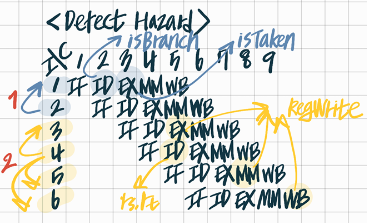 <Detect Hazard>
isBranch isTaken
I\C 1 2 3 4 5 6 7 8 9
1 IF ID EX MM WB
1 2 IF ID EX MM WB
3 IF ID EX MM WB RegWrite
2 4 IF ID EX MM WB
5 IF ID EX MM WB
6 IF ID EX MM WB